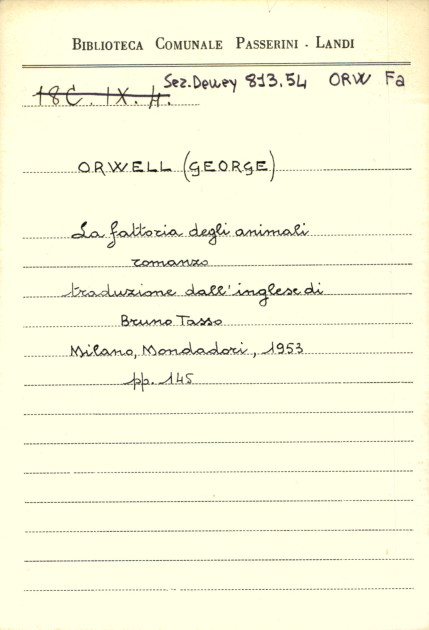 BIBLIOTECA COMUNALE PASSERINI - LANDI
Sez. Dewey 813.54 ORW Fa
18C. IX. 4.
ORWELL (GEORGE)
La fattoria degli animali
romanzo
traduzione dall'inglese di
Bruno Tasso
Milano, Mondadori, 1953
pp. 145